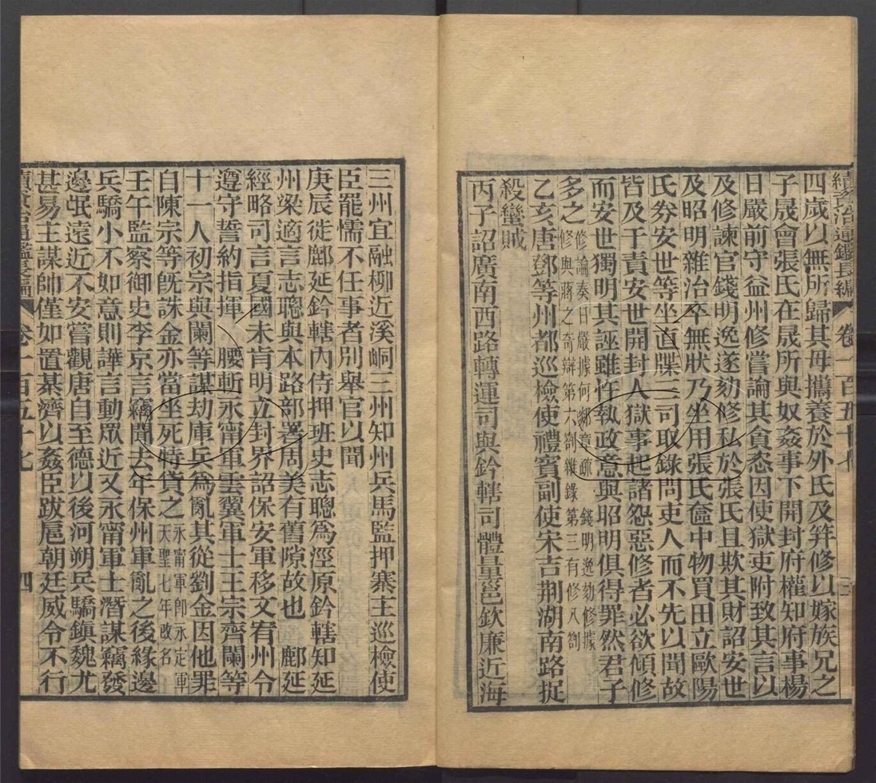 續資治通鑑長編 卷一百五十七
四歲以無所歸其母攜養於外氏及笄修以嫁族兄之
子晟會張氏在晟所與奴姦事下開封府權知府事楊
日嚴前守益州修嘗論其貪恣因使獄吏附致其言以
及修諫官錢明逸遂劾修私於張氏且欺其財詔安世
及昭明雜治卒無狀乃坐用張氏奩中物買田立歐陽
氏券安世等坐直牒三司取錄問吏人而不先以聞故
皆及于責安世開封人獄事起諸怨惡修者必欲傾修
而安世獨明其誣雖忤執政意與昭明俱得罪然君子
多之
修論奏日嚴據何鄭章疏 錢明逸劾修據
修與蔣之奇辯第六劄獄錄第三有修入劄
乙亥唐鄧等州都巡檢使禮賓副使宋吉荆湖南路捉
殺蠻賊
丙子詔廣南西路轉運司與鈐轄司體量邕欽廉近海
三州宜融柳近溪峒三州知州兵馬監押寨主巡檢使
臣罷懦不任事者別舉官以聞
庚辰徙鄜延鈐轄內侍押班史志聰為涇原鈐轄知延
州梁適言志聰與本路部署周美有舊隙故也 鄜延
經略司言夏國未肯明立封界詔保安軍移文宥州令
遵守誓約指揮 腰斬永甯軍雲翼軍士王宗齊闌等
十一人初宗與闌等謀劫庫兵為亂其從劉金因他罪
自陳宗等既誅金亦當坐死特貸之
永甯軍卽永定軍
天聖七年改名
壬午監察御史李京言竊聞去年保州軍亂之後緣邊
兵驕小不如意則譁言動眾近又永甯軍士潛謀竊發
邊氓遠近不安嘗觀唐自至德以後河朔兵驕鎮魏尤
甚易主謀帥僅如置棊濟以姦臣跋扈朝廷威令不行
續資治通鑑長編 卷一百五十七 四